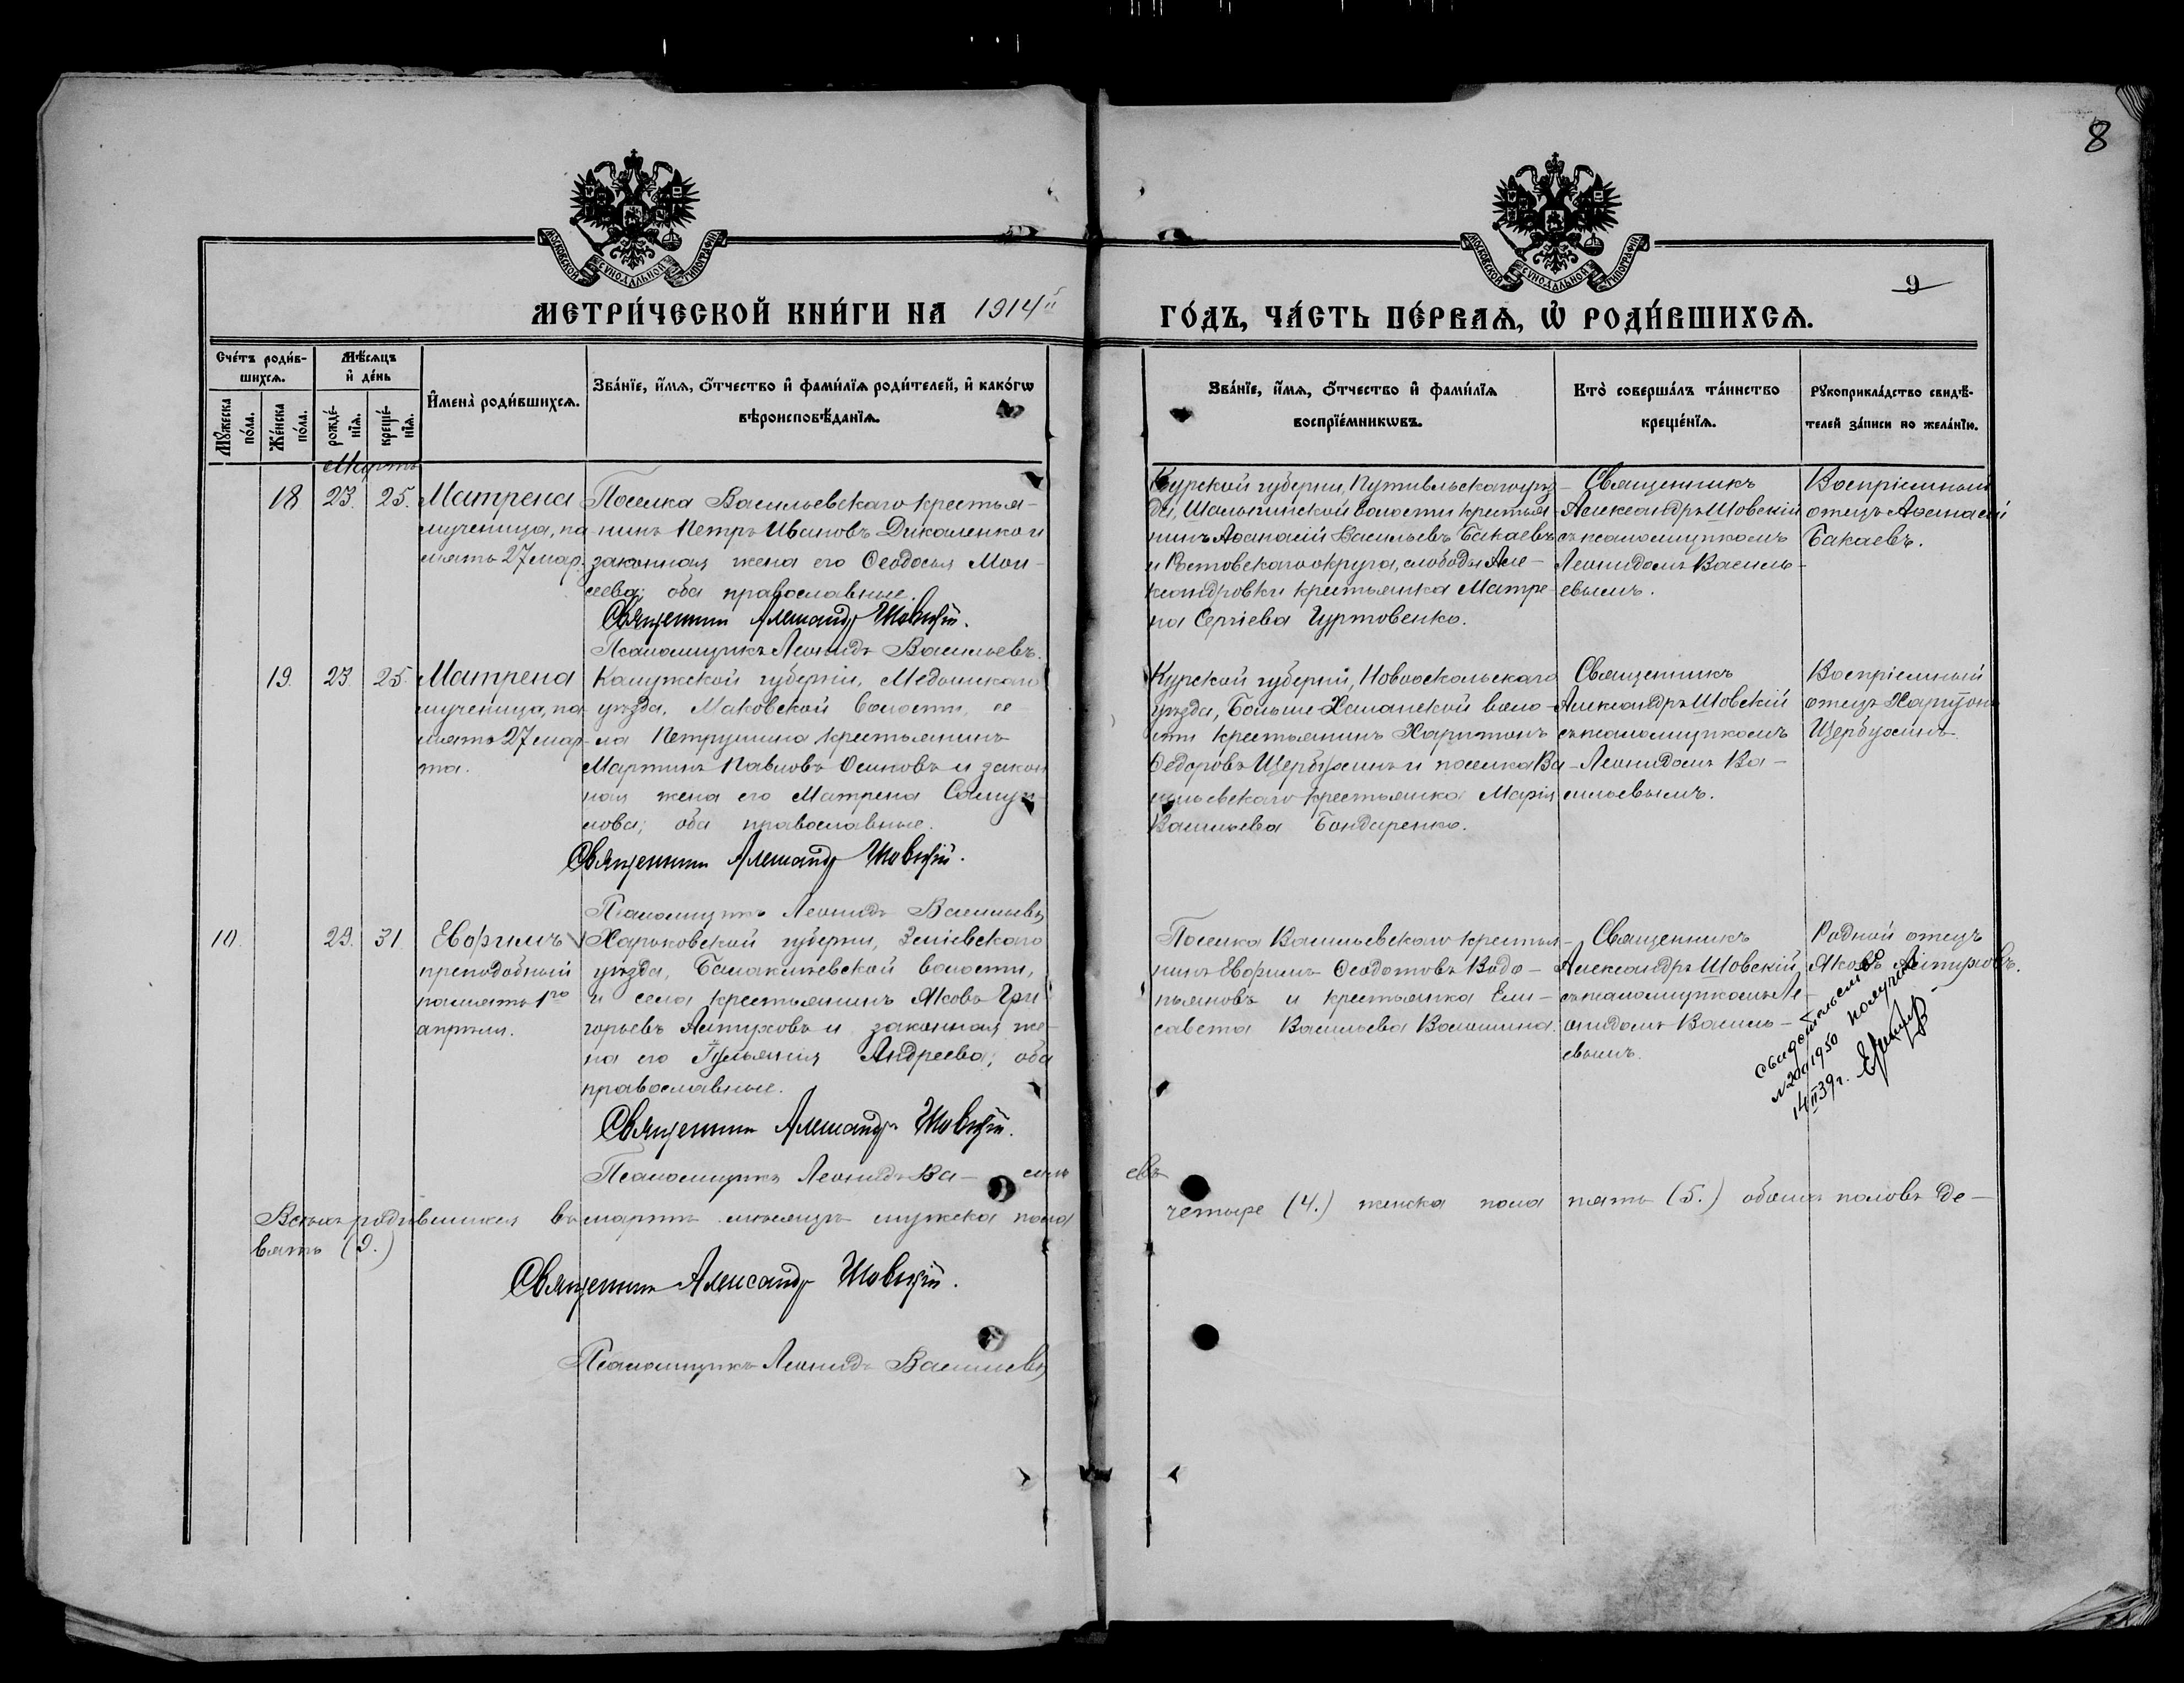 8
МОСКОВСКОЙ СѴНОДАЛЬНОЙ ТИПОГРАФІИ
МОСКОВСКОЙ СѴНОДАЛЬНОЙ ТИПОГРАФІИ
9
МЕТРИ́ЧЕСКОЙ КНИ́ГИ НА 1914й ГО́ДЪ, ЧА́СТЬ ПЕ́РВАѦ, Ѽ РОДИ́ВШИХСѦ.
Сче́тъ роди́в-
шихсѧ.
Мѣ́сѧцъ
и҆ де́нь
Мꙋ́жеска
по́ла.
Же́нска
по́ла.
рожде́-
нїѧ.
креще́-
нїѧ.
И҆мена̀ роди́вшихсѧ.
Зва́нїе, и҆́мѧ, ѻ҆́тчество и҆ фами́лїѧ роди́телей, и҆ како́гѡ
вѣроисповѣ́данїѧ.
Зва́нїе, и҆́мѧ, ѻ҆́тчество и҆ фами́лїѧ
воспрїе́мникѡвъ.
Кто̀ соверша́лъ та́инство
креще́нїѧ.
Рꙋкоприкла́дство свидѣ́-
телей за́писи по жела́нїю.
Мартъ
18 23. 25. Матрена
мученица, па
мять 27 мар.
Поселка Васильевскаго крестья-
нинъ Петръ Ивановъ Дикаленко и
законная жена его Ѳеодосья Мои-
сеева; оба православные.
Священникъ Александръ Шовскій.
Псаломщикъ Леонидъ Васильевъ.
Курской губерніи, Путивльскаго уѣз-
да, волости крестья
нинъ Аѳанасій Васильевъ Бакаевъ
и Ростовскаго округа, слободы Але-
ксандровки крестьянка Матре-
на Сергіева Гуртовенко.
Священникъ
Александръ Шовскій
съ псаломщикомъ
Леонидомъ Василь-
евымъ.
Воспріемный
отецъ Аѳанасій
Бакаевъ.
19. 23. 25. Матрена
мученица, па-
мять 27 мар-
та.
Калужской губерніи, Медынскаго
уѣзда, Маковской волости, се-
ла Петрушина крестьянинъ
Мартинъ Павловъ Осиповъ и закон
ная жена его Матрена Самуи-
лова; оба православные.
Священникъ Александръ Шовскій.
Псаломщикъ Леонидъ Васильевъ
Курской губерніи, Новооскольскаго
уѣзда, Больше-Халанской воло-
сти крестьянинъ Харитонъ
Ѳедоровъ Щербининъ и поселка Ва-
сильевскаго крестьянка Марія
Васильева Бондаренко.
Священникъ
Александръ Шовскій
съ псаломщикомъ
Леонидомъ Ва-
сильевымъ.
Воспріемный
отецъ Харитонъ
10. 29. 31. Евѳимъ
преподобный
память 1го
апрѣля.
Харьковской губерніи, Зміевскаго
уѣзда, Балаклеевской волости,
и села крестьянинъ Яковъ Гри-
горьевъ Алтуховъ и законная же-
на его Андреева; оба
православные.
Священникъ Александръ Шовскій.
Псаломщикъ Леонидъ Ва-сильевъ
Поселка Васильевскаго крестья-
нинъ Евѳимъ Ѳеодотовъ Водо-
пьяновъ и крестьянка Ели-
савета Васильева Волошина.
Священникъ
Александръ Шовскій
съ псаломщикомъ Ле-
онидомъ Василь-
евымъ.
Родной отецъ
Яковъ Алтуховъ.
Свидетельство
получил
14/II 39 г.
Всѣхъ родившихся въ мартѣ мѣсяцѣ мужеска пола четыре (4.) женска пола пять (5.) обоихъ половъ де-
вять (9.)
Священникъ Александръ Шовскій.
Псаломщикъ Леонидъ Васильевъ